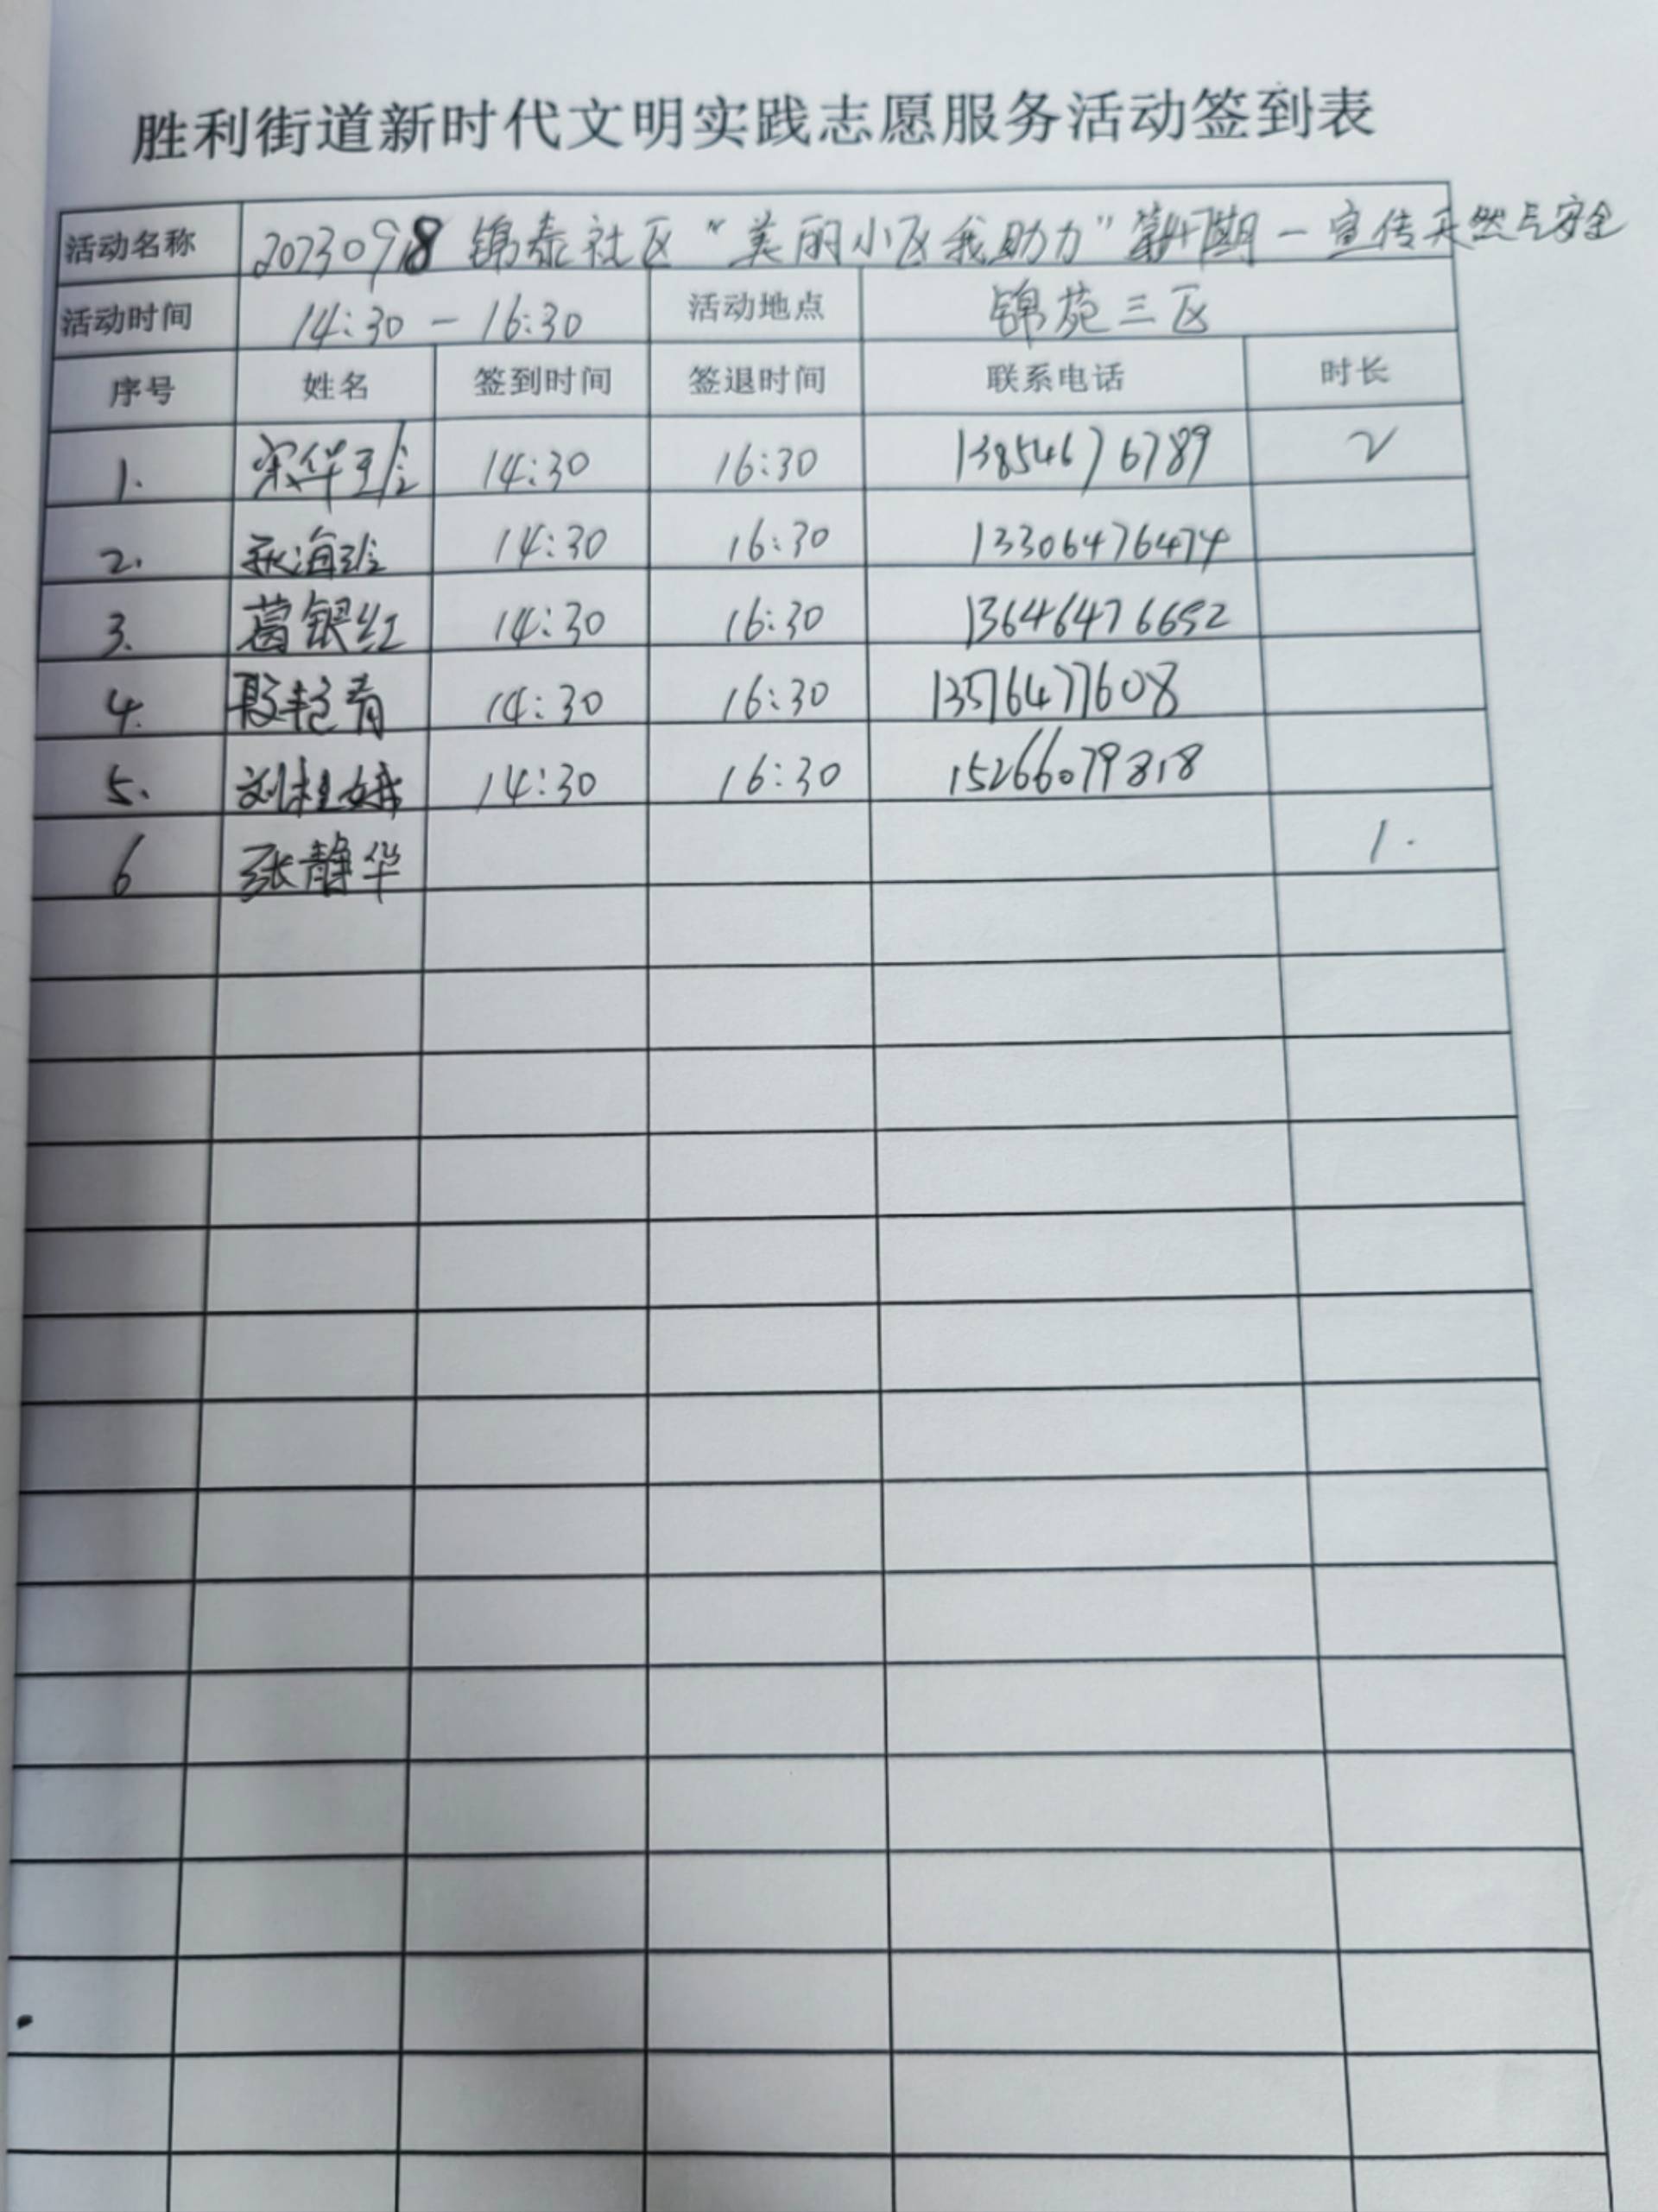 胜利街道新时代文明实践志愿服务活动签到表
活动名称 20230918 锦泰社区“美丽小区我助力”第 期一宣传天然气安全
活动时间 14:30 - 16:30 活动地点 锦苑三区
序号 姓名 签到时间 签退时间 联系电话 时长
1. 宋华玲 14:30 16:30 13854676789 2
2. 海玲 14:30 16:30 13306476474
3. 葛银红 14:30 16:30 13646476652
4. 殷艳青 14:30 16:30 13576477608
5. 刘桂娥 14:30 16:30 15266079818
6 张静华 1.